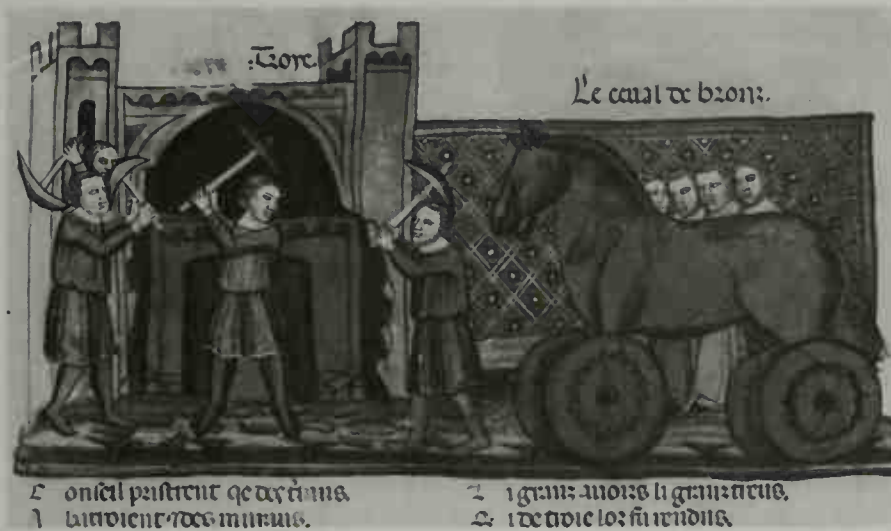 Troye.
Le caual de bronz.
C onseil pristrent qe des
A batroient des
L i granz auoirs li granz treus.
Q i de troie lor fu rendus.